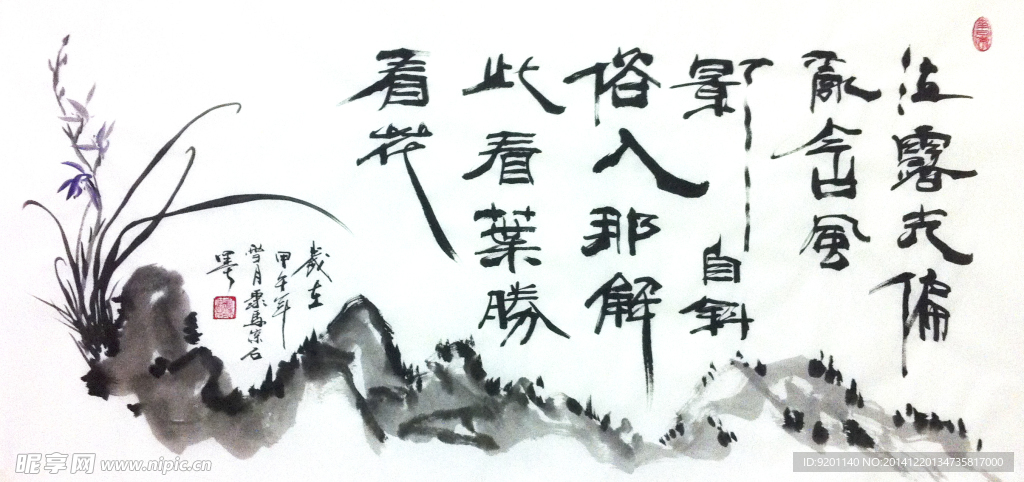 泣露光偏
亂含風
影自斜
俗人那解
此看葉勝
看花
歲在
甲午年
雪月
墨
昵享网 www.nipic.cn
ID:9201140 NO:20141220134735817000